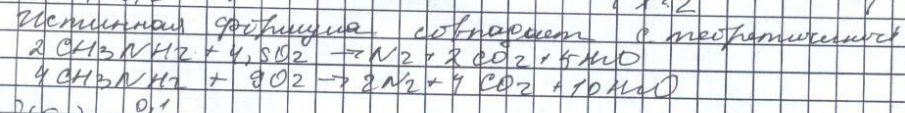 1:2
Истинная формула совпадает с теоретической
2 CH3NH2 + 4,5O2 → N2 + 2 CO2 + 5H2O
4 CH3NH2 + 9O2 → 2N2 + 4 CO2 + 10H2O
0,1